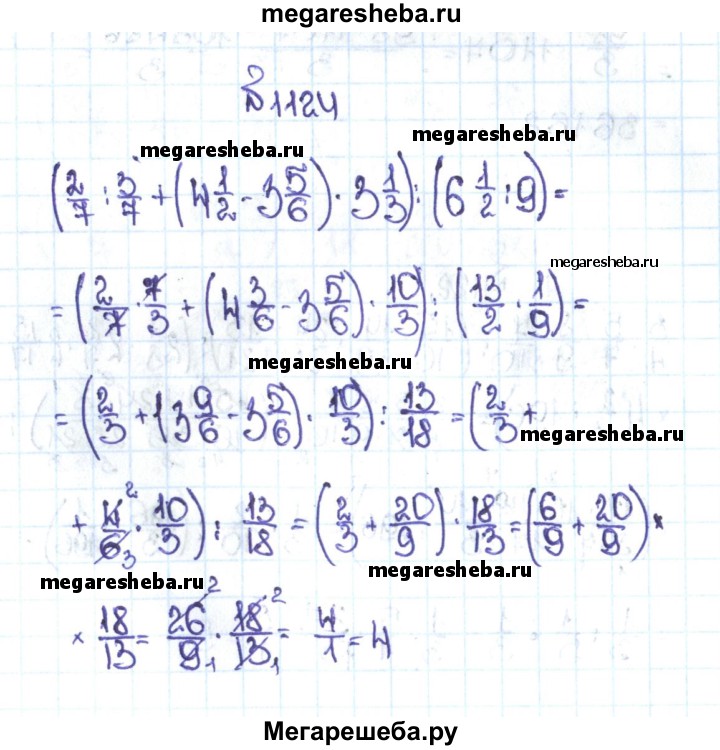 megaresheba.ru
№ 1124
megaresheba.ru
megaresheba.ru
(2/7 : 3/7 + (4 1/2 - 3 5/6) · 3 1/3) : (6 1/2 : 9) =
megaresheba.ru
= (2/7 · 7/3 + (4 3/6 - 3 5/6) · 10/3) : (13/2 · 1/9) =
megaresheba.ru
= (2/3 + (3 9/6 - 3 5/6) · 10/3) : 13/18 = (2/3 +
megaresheba.ru
+ 4/6 2 3 · 10/3) : 13/18 = (2/3 + 20/9) · 18/13 = (6/9 + 20/9) ×
megaresheba.ru
megaresheba.ru
× 18/13 = 26/9 2 1 · 18/13 2 1 = 4/1 = 4
megaresheba.ru
Мегарешеба.ру